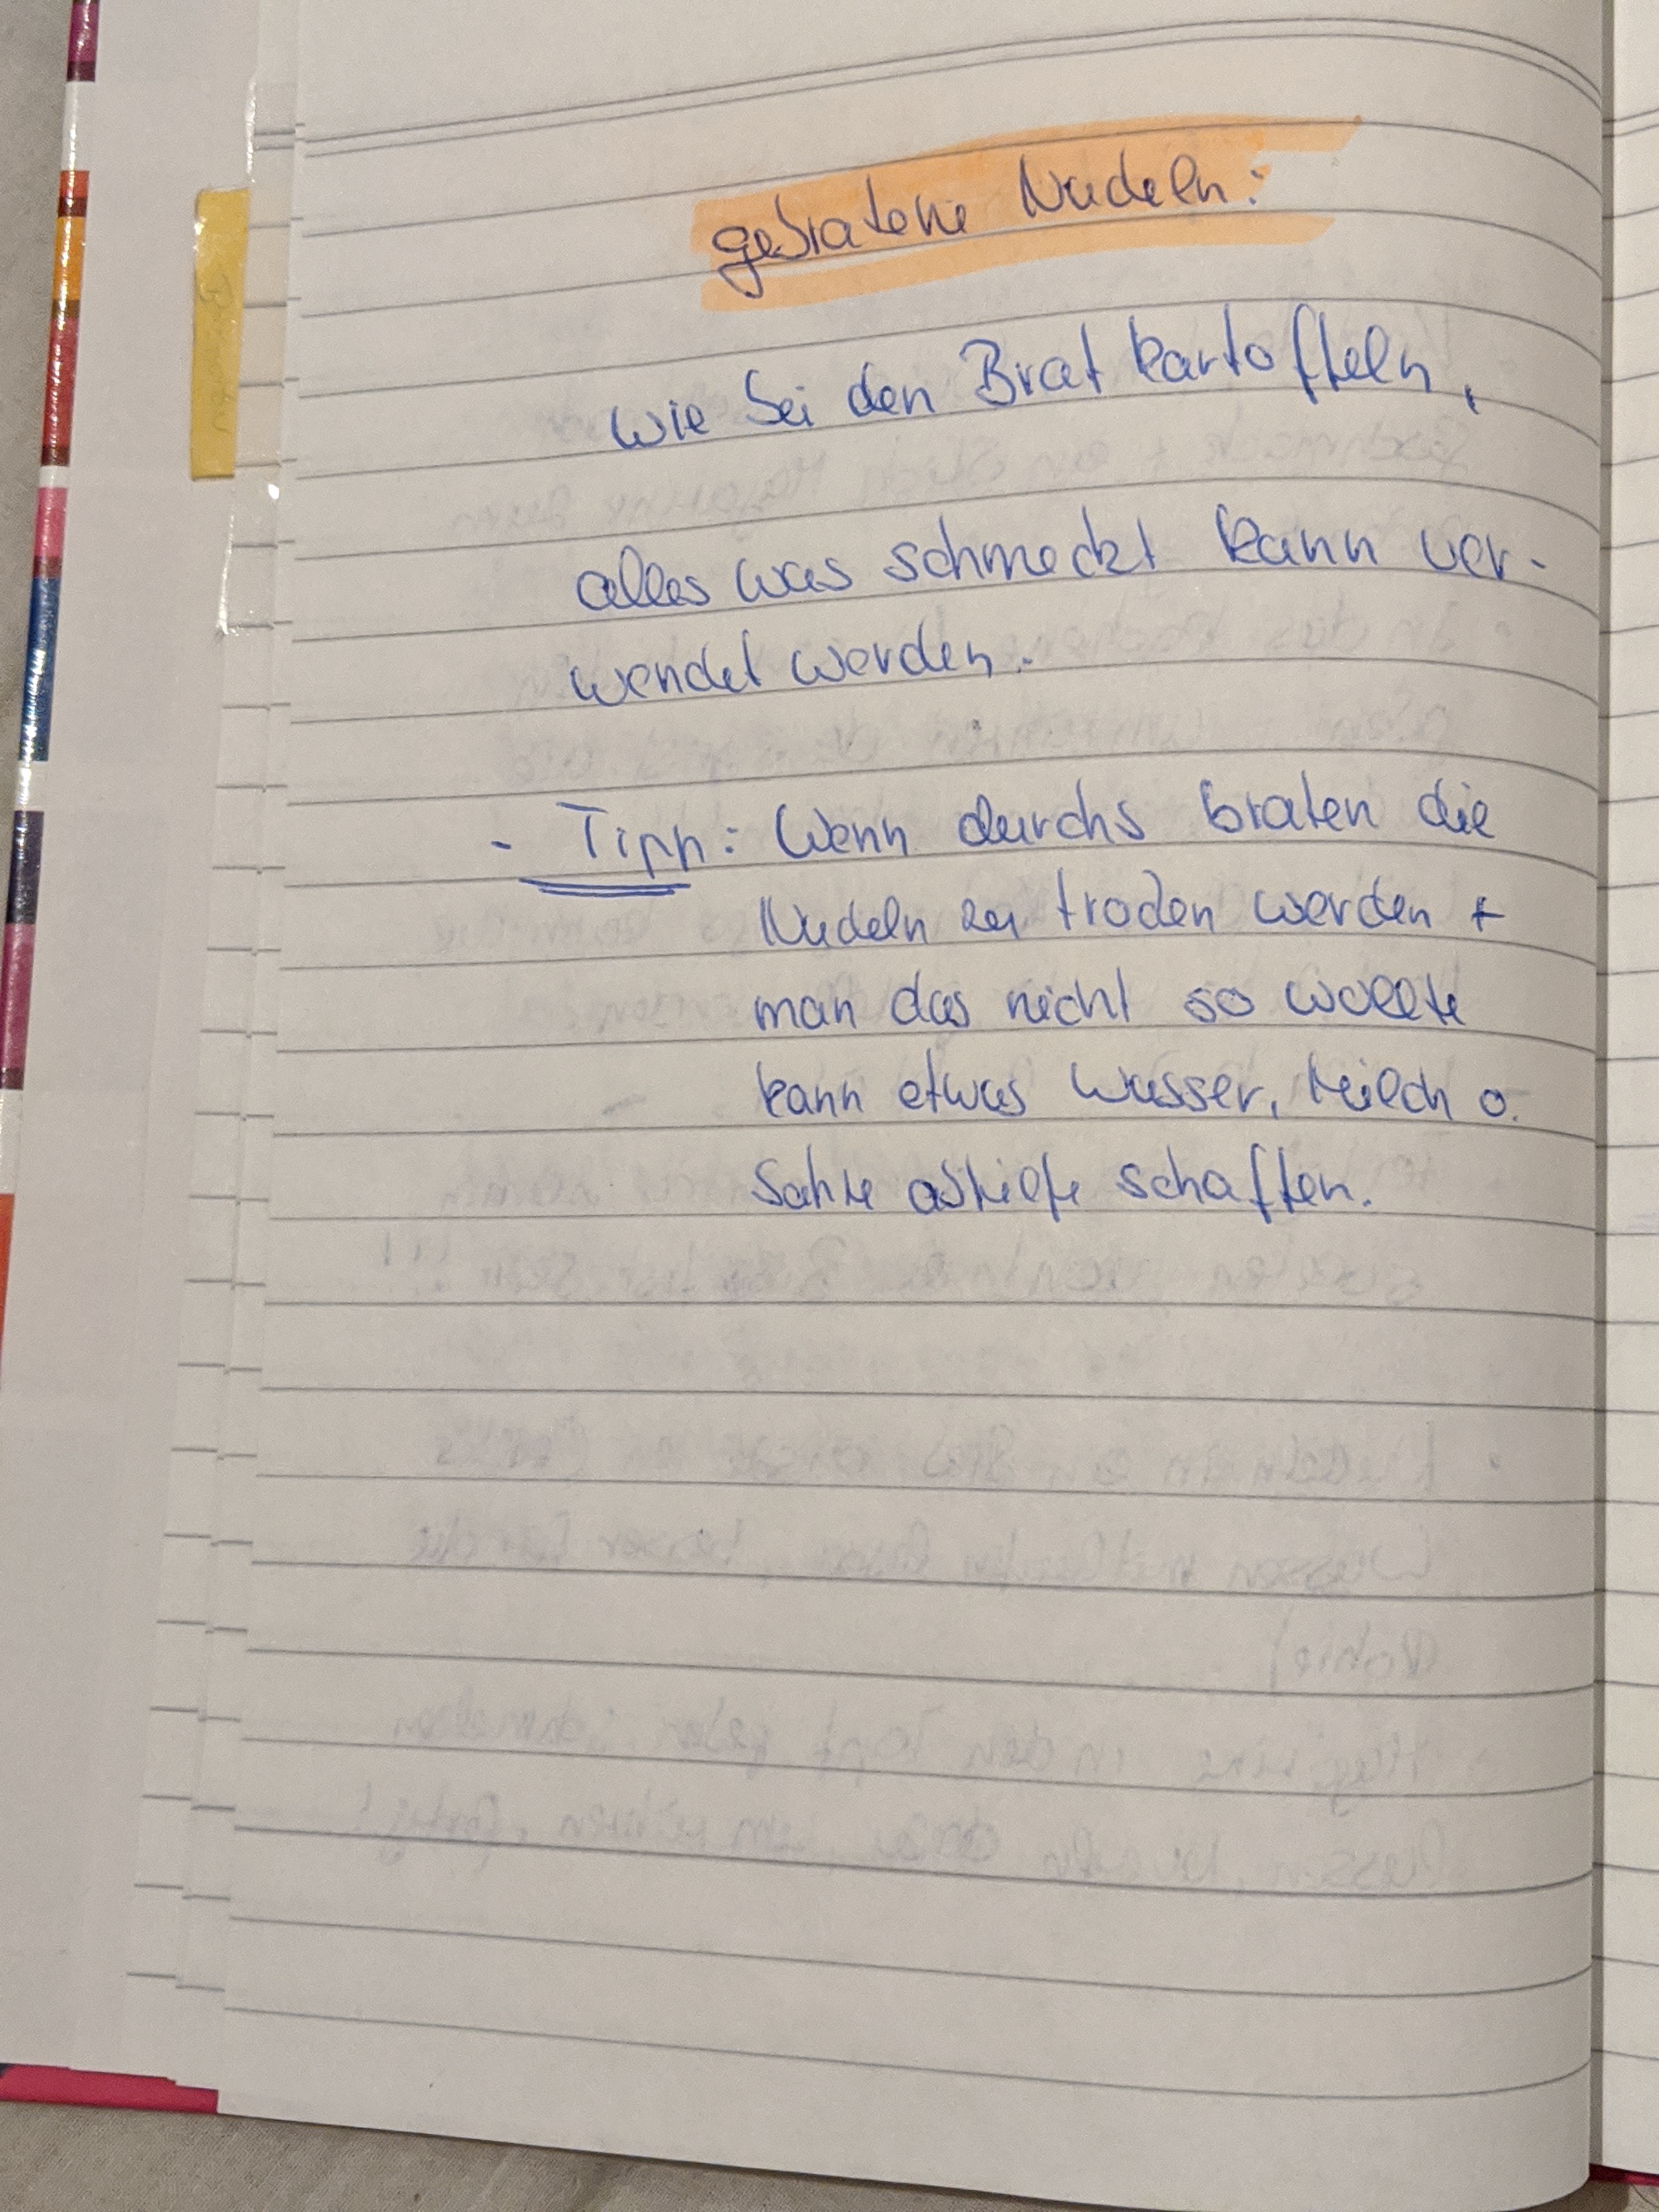 gebratene Nudeln:
wie bei den Bratkartoffeln,
alles was schmeckt kann ver-
wendet werden.
- Tipp: Wenn durchs braten die
Nudeln zu trocken werden +
man das nicht so wollte
kann etwas Wasser, Milch o.
Sahne abhielfe schaffen.